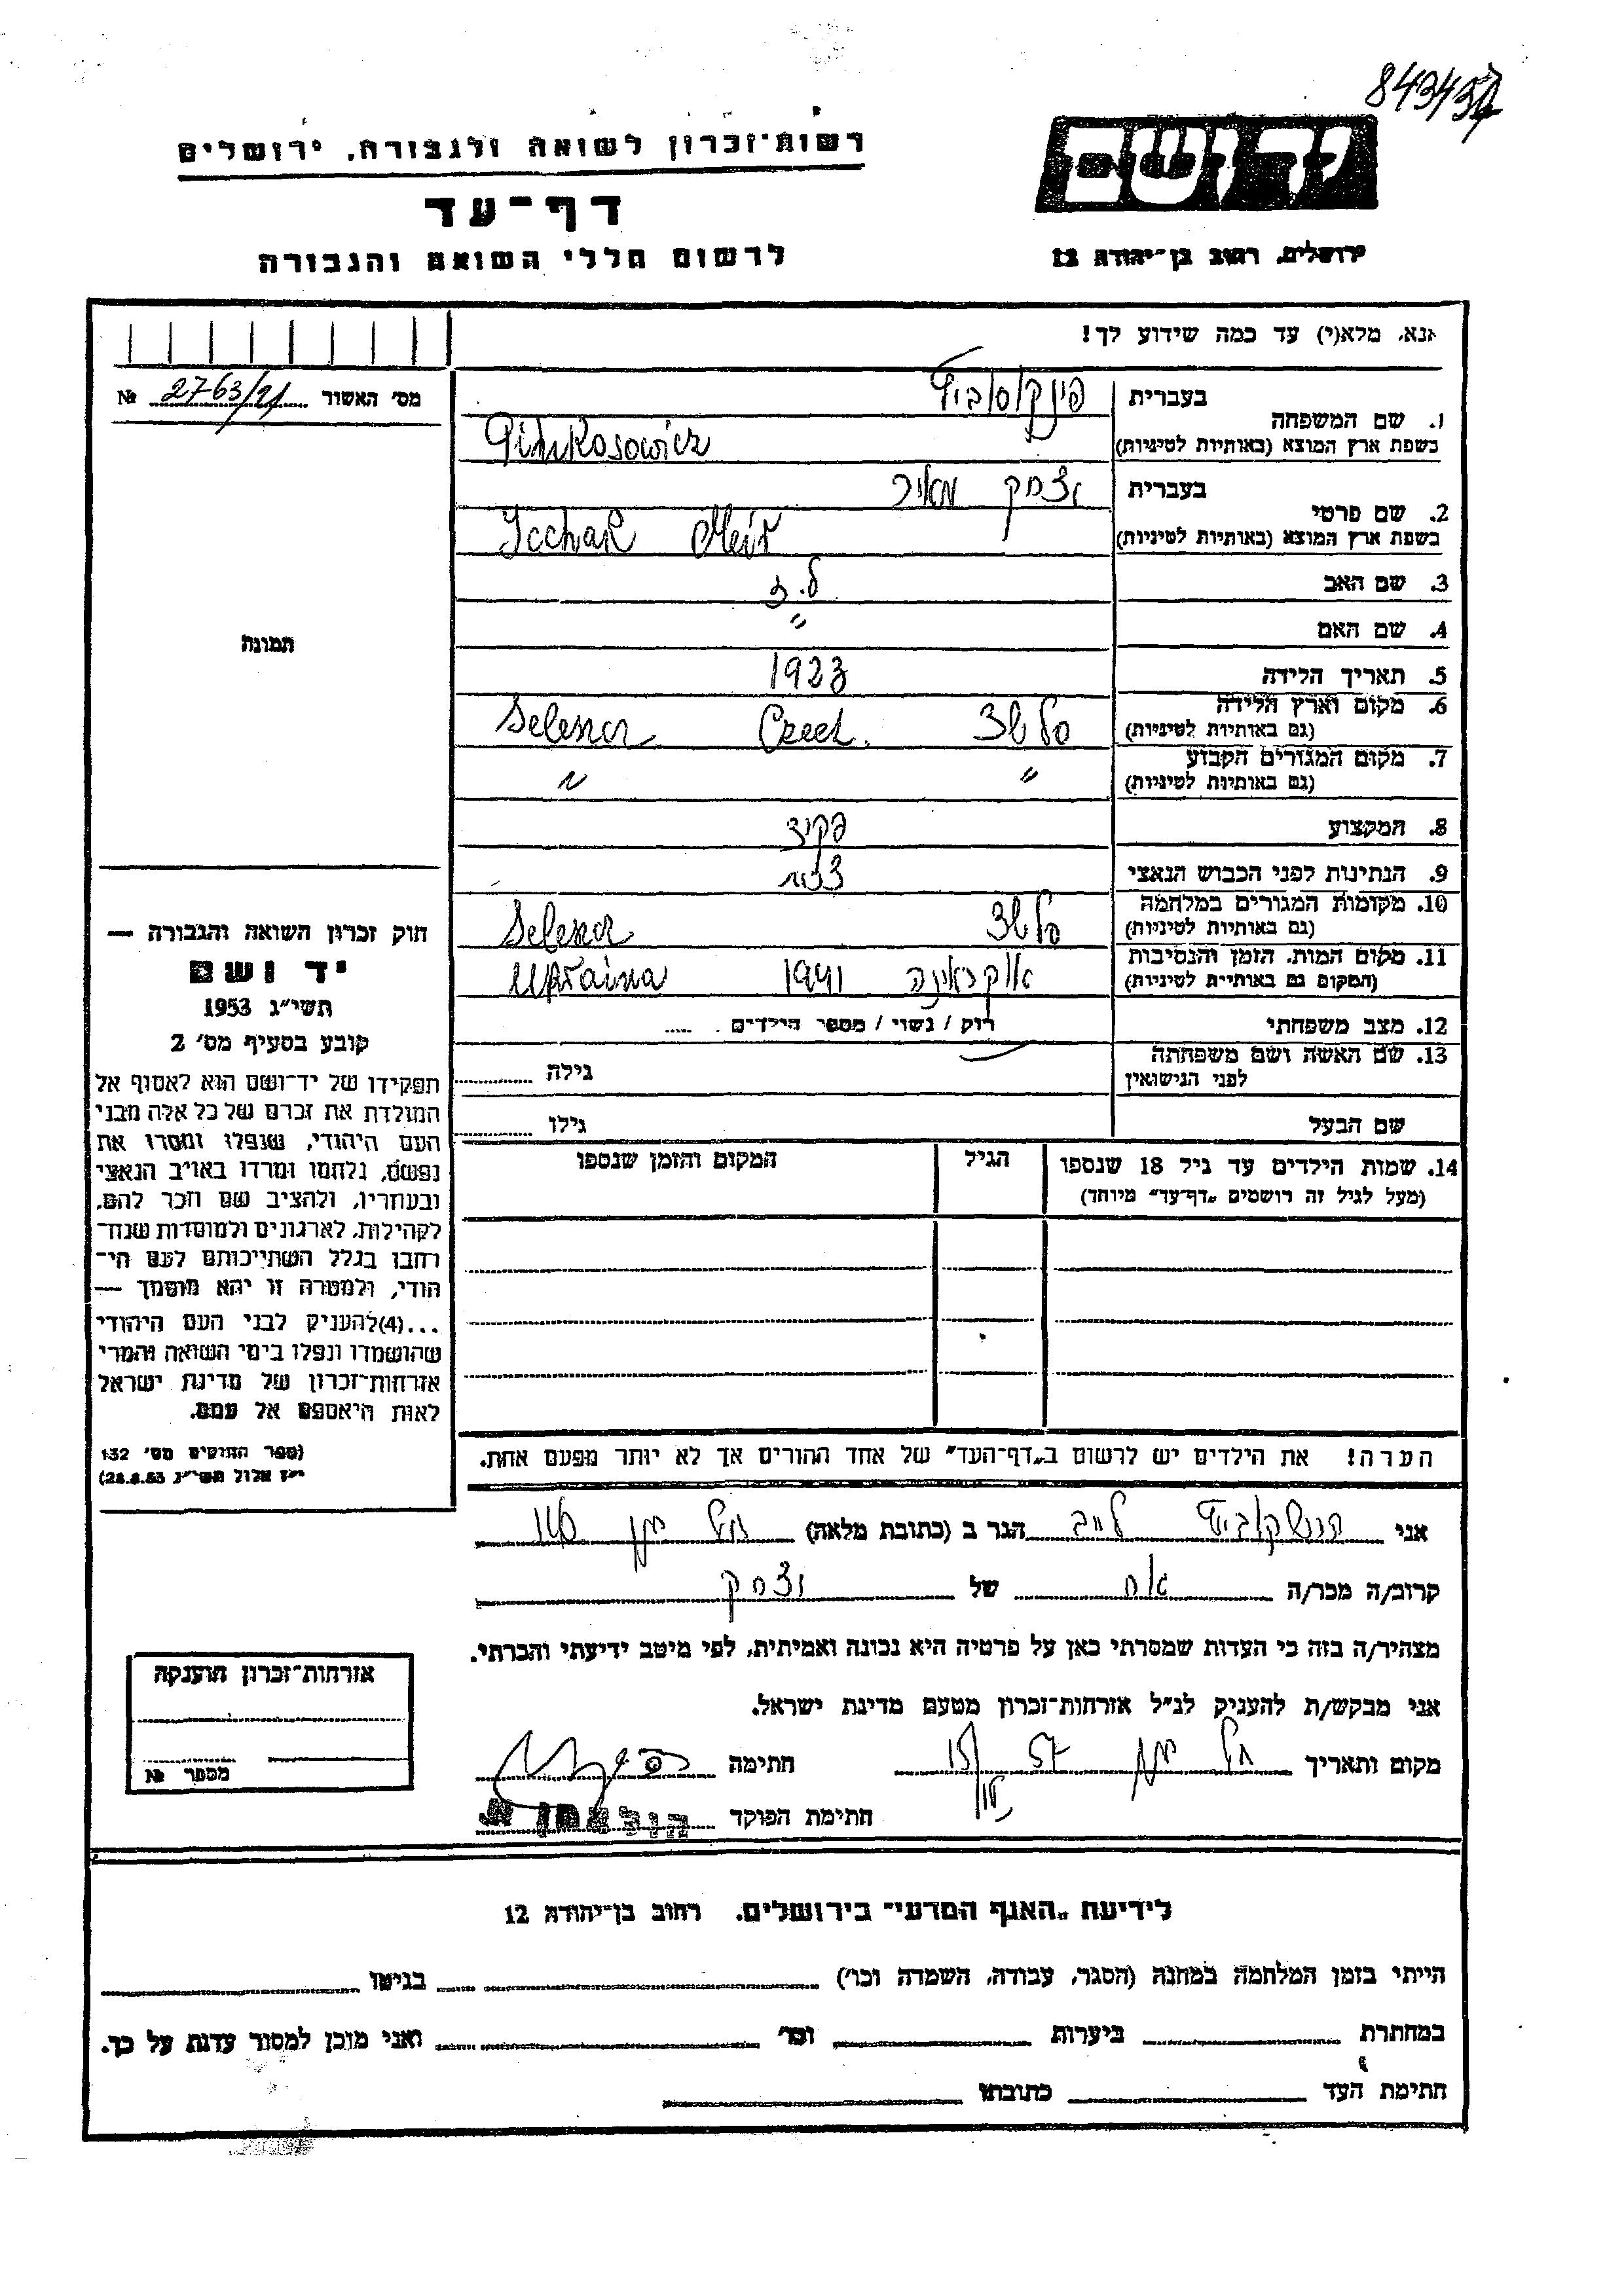 רשות־זכרון לשואה ולגבורה, ירושלים
דף־עד
לרשום חללי השואה והגבורה
יד ושם
ירושלים, רחוב בן־יהודה 12
אנא, מלא(י) עד כמה שידוע לך!
מס׳ האשור № 2763/21
1. שם המשפחה
בעברית
בשפת ארץ המוצא (באותיות לטיניות)
2. שם פרטי
בעברית יצחק מאיר
בשפת ארץ המוצא (באותיות לטיניות) Icchak Meir
3. שם האב
4. שם האם "
5. תאריך הלידה 1923
6. מקום וארץ הלידה
(גם באותיות לטיניות)
7. מקום המגורים הקבוע " "
(גם באותיות לטיניות)
8. המקצוע פקיד
9. הנתינות לפני הכבוש הנאצי
10. מקומות המגורים במלחמה
(גם באותיות לטיניות)
11. מקום המות, הזמן והנסיבות אוקראינה 1941 Ukraina
(המקום גם באותיות לטיניות)
12. מצב משפחתי רוק / נשוי / מספר הילדים .....
13. שם האשה ושם משפחתה
לפני הנישואין
גילה
שם הבעל גילו
14. שמות הילדים עד גיל 18 שנספו
(מעל לגיל זה רושמים „דף־עד״ מיוחד)
הגיל
המקום והזמן שנספו
הערה! את הילדים יש לרשום ב„דף־העד״ של אחד ההורים אך לא יותר מפעם אחת.
תמונה
חוק זכרון השואה והגבורה —
יד ושם
תשי״ג 1953
קובע בסעיף מס׳ 2
תפקידו של יד־ושם הוא לאסוף אל
המולדת את זכרם של כל אלה מבני
העם היהודי, שנפלו ומסרו את
נפשם, נלחמו ומרדו באויב הנאצי
ובעוזריו, ולהציב שם וזכר להם,
לקהילות, לארגונים ולמוסדות שנח־
רבו בגלל השתייכותם לעם הי־
הודי, ולמטרה זו יהא מוסמך —
...(4)להעניק לבני העם היהודי
שהושמדו ונפלו בימי השואה והמרי
אזרחות־זכרון של מדינת ישראל
לאות היאספם אל עמם.
(ספר החוקים מס׳ 132
י״ז אלול תשי״ג 28.8.53)
אני הגר ב (כתובת מלאה)
קרוב/ה מכר/ה אח של יצחק
מצהיר/ה בזה כי העדות שמסרתי כאן על פרטיה היא נכונה ואמיתית, לפי מיטב ידיעתי והכרתי.
אני מבקש/ת להעניק לנ״ל אזרחות־זכרון מטעם מדינת ישראל.
מקום ותאריך חתימה
חתימת הפוקד
אזרחות־זכרון הוענקה
מספר №
לידיעת „האגף המדעי״ בירושלים, רחוב בן־יהודה 12
הייתי בזמן המלחמה במחנה (הסגר, עבודה, השמדה וכו׳) בגיטו
במחתרת ביערות וכו׳ ואני מוכן למסור עדות על כך.
חתימת העד כתובתו